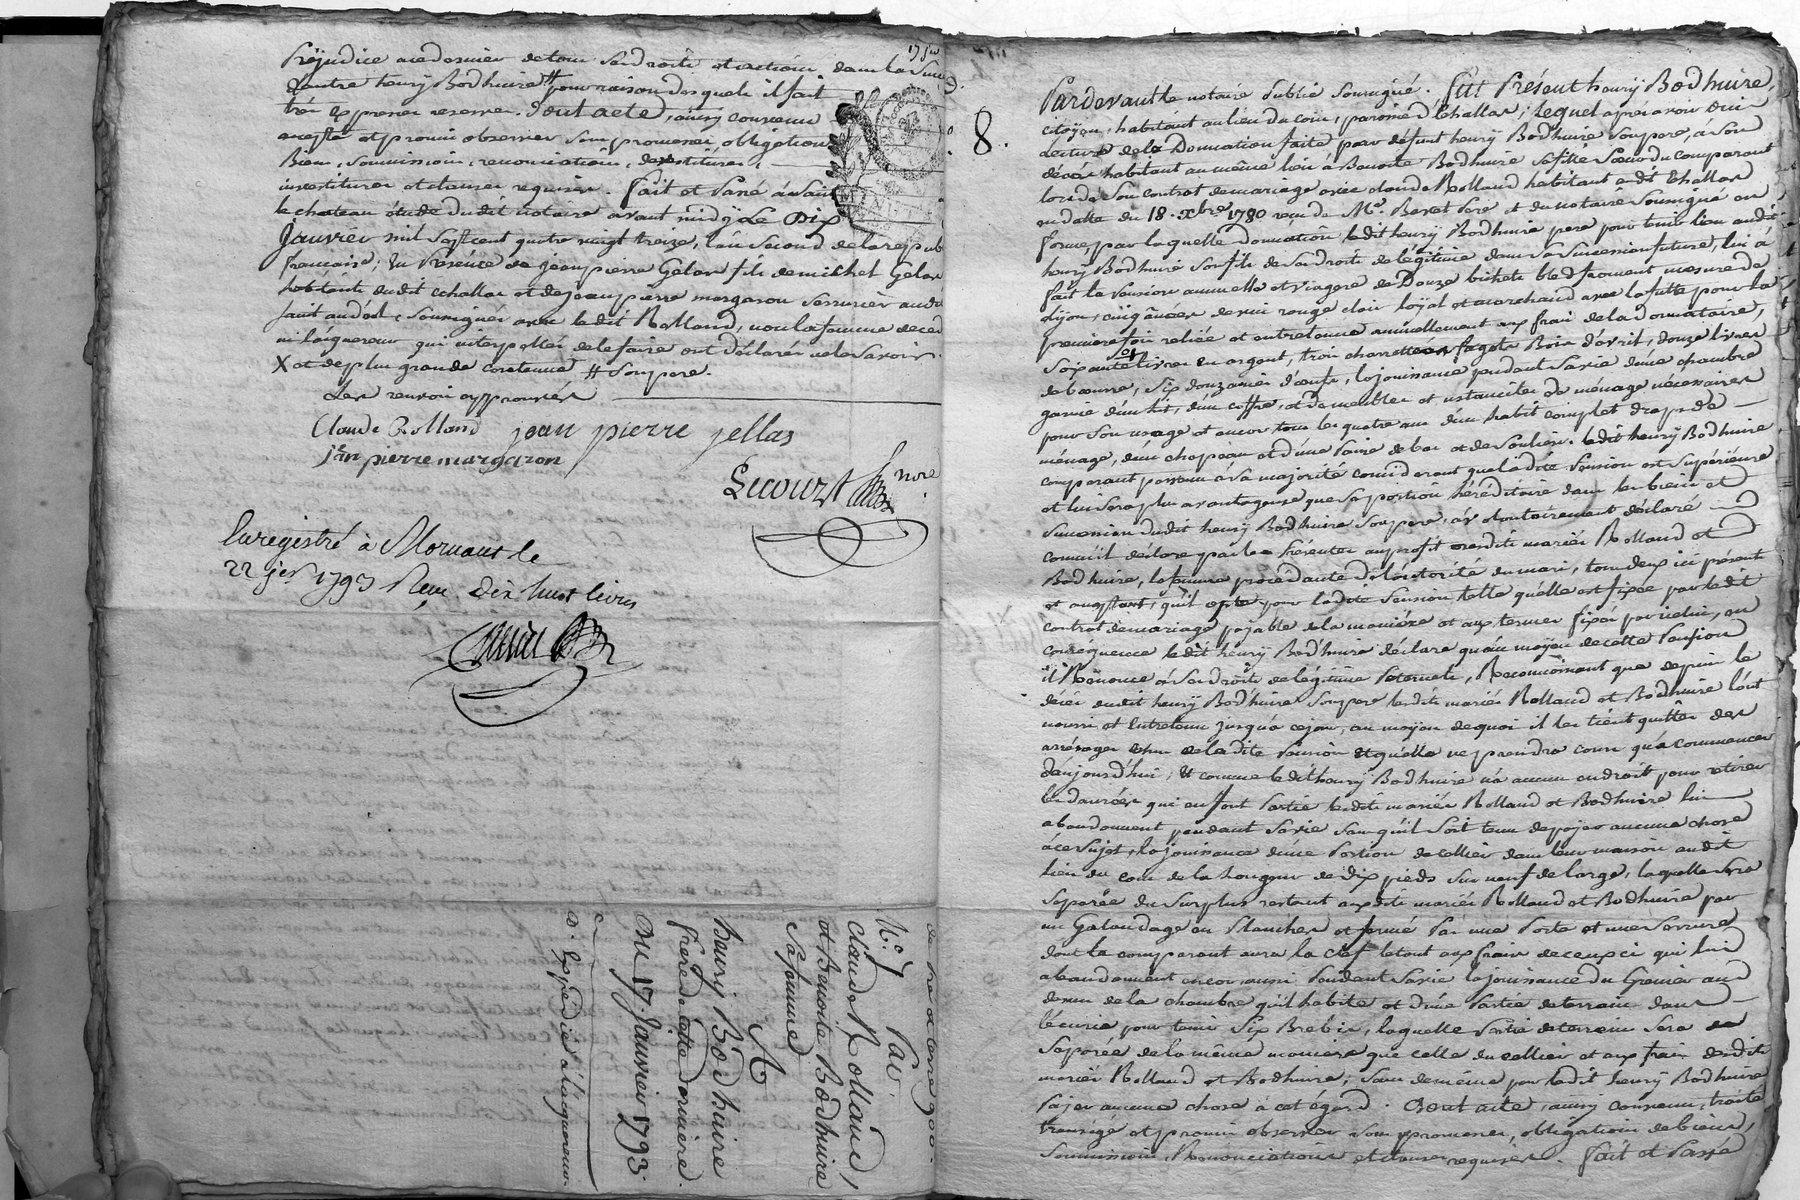 préjudice au dernier de tous ses droits et actions dans la
d'autre henry Bodhuire # pour raison desquels il fait
très expresses reserves. Dont acte, ainsy convenu
accepté et promis observer sous promesses, obligation
Biens, soumissions, renonciations,
investitures et clauses requises. fait et passé à
le chateau étude dudit notaire avant midy Le Dix
Janvier mil sept cent quatre vingt treize, l'an second de la repub
francaise; En présence de jean pierre Gelas fils de michel Gelas
habitants dudit Echallas et de jean pierre margaron serrurier
soussignés avec ledit Rolland, non la femme
ni l'acquereur qui interpellés de le faire ont déclarés ne le savoir.
X et de plus grande contenue # son pere.
Les renvois approuvés
Claude Rolland jean pierre jellas
jan pierre margaron
Lecourt nore
Enregistré à Mornant le
22 jer 1793 Reçu Dix huit livres
de pré et terre 900.
N.° 7 Par
Claude Rolland,
et Benoite Bodhuire
sa femme
A
henry Bodhuire
frere de cette derniere.
DU 17. Janvier 1793.
Expédié à l'acquereur.
8.
Pardevant le notaire public soussigné. fut Présent henry Bodhuire,
citoyen, habitant au lieu du coin, paroisse d'Echallas; Lequel après avoir ouï
Lecture de la Donnation faite par défunt henry Bodhuire son pere, à son
décès habitant au même lieu à Benoite Bodhuire sa fille sœur du comparant
lors de son contrat de mariage avec claude Rolland habitant audit Echallas
en datte du 18. xbre 1780 recu de Me. Bertet Pere et du notaire soussigné en
forme, par laquelle donnation ledit henry Bodhuire pere pour tenir lieu audit
henry Bodhuire son fils de ses droits de légitime dans sa succession future, lui a
fait la pension annuelle et viagere de Douze bichets bled froment mesure de
dijon, cinq ânées de vin rouge clair loyal et marchand avec la futte pour la
premiere fois reliée et entretenue annuellement aux frais de la donnataire,
soixante livres en argent, trois charretées fagots Bois d'avril, douze livres
de beurre, six douzaines d'œufs, la jouissance pendant sa vie d'une chambre
garnie d'un lit, d'un coffre, et de meubles et ustanciles de ménage nécessaires
pour son usage et encor tous les quatre ans d'un habit complet drap de
ménage, d'un chapeau et d'une paire de bas et de souliers. ledit henry Bodhuire
comparant parvenu à sa majorité considerant que ladite pension est supérieure
et lui sera plus avantageuse que sa portion héréditaire dans les biens et
succession dudit henry Bodhuire son pere, a volontairement déclaré
comme il déclare par les présentes au profit desdits mariés Rolland et
Bodhuire, la femme procédante de l'autorité du mari, tous deux ici présents
et acceptants, qu'il opte pour ladite pension telle qu'elle est fixée par ledit
contrat de mariage payable de la maniére et aux termes fixés par icelui, en
consequence ledit henry Bodhuire déclare qu'au moyen de cette pension
il Renonce à ses droits de légitime paternels, Reconnoissant que depuis le
décès dudit henry Bodhuire son pere lesdits mariés Rolland et Bodhuire l'ont
nourri et entretenu jusqu'à ce jour, au moyen de quoi il les tient quittes des
arrérages de ladite pension et qu'elle ne prendra cours qu'à commencer
d'aujourd'hui; Et comme ledit henry Bodhuire n'a aucun endroit pour retirer
les danrées qui en font partie lesdits mariés Rolland et Bodhuire lui
abandonnent pendant sa vie sans qu'il soit tenu de payer aucune chose
à ce sujet, la jouissance d'une portion de cellier dans leur maison audit
lieu du coin de la longueur de dix pieds sur neuf de large, laquelle sera
séparée du surplus restant auxdits mariés Rolland et Bodhuire par
un Galandage en planches et fermé par une porte et une serrure
dont le comparant aura la clef le tout aux frais de ceux ci qui lui
abandonnent encor aussi pendant sa vie la jouissance du Grenier au
dessus de la chambre qu'il habite et d'une partie de terrein dans
l'écurie pour tenir six Brebis, laquelle partie de terrein sera
séparée de la même maniere que celle du cellier et aux frais desdits
mariés Rolland et Bodhuire; sans de même par ledit henry Bodhuire
payer aucune chose à cet égard. Dont acte, ainsy convenu, traité
transigé et promis observer sous promesses, obligation de biens,
soumissions, Renonciations et clauses requises. fait et Passé